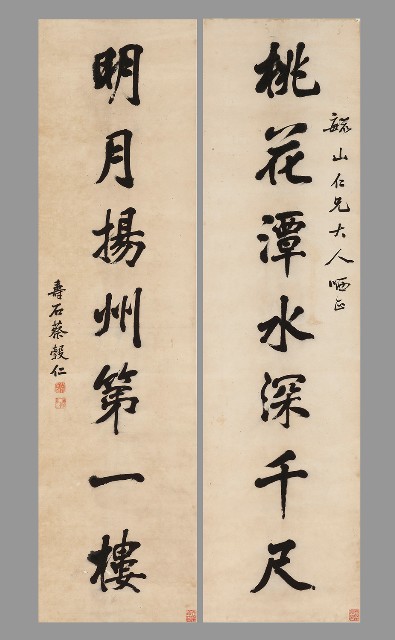 毓山仁兄大人哂正
桃花潭水深千尺
明月揚州第一樓
壽石蔡毅仁